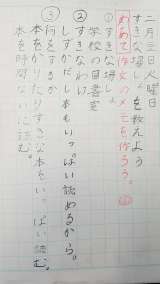 二月三日火曜日
すきな場しょを教えよう
めあて作文のメモを作ろう。
①すきな場しょ
学校の図書室
②すきなわけ
しずかだし本もいっぱい読めるから。
③何をするか
本をかりたりすきな本をいっぱい読む。
本を時間ないに読む。